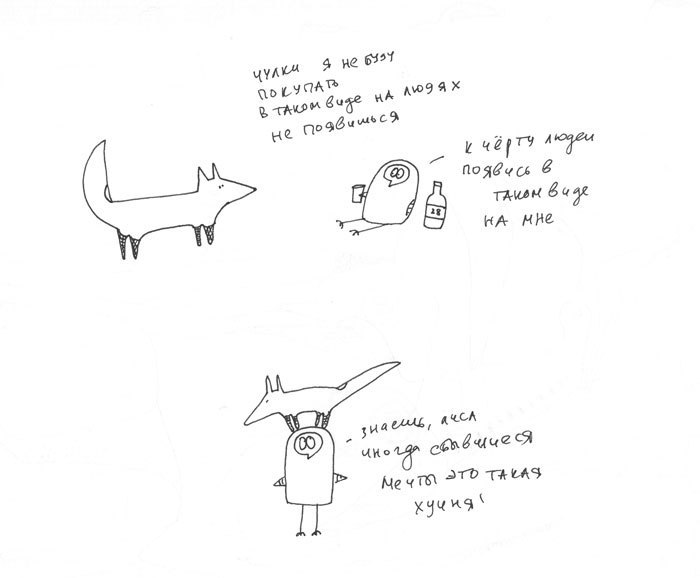 чулки я не буду
покупать
в таком виде на людях
не появишься
к чёрту людей
появись в
таком виде
на мне
28
знаешь, лиса
иногда сбывшиеся
мечты это такая
хуйня!